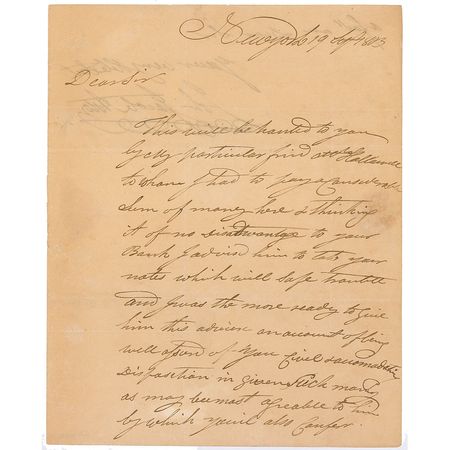 Newyork 19 Sept 1813
Dear Sir
This will be handed to you
by My particular frind Hallanee
to whome I had to pay a Considerable
Sum of money here & thinking
it of no disadvantage to your
Bank I advisd him to take your
notes which will Safe trouble
and I was the more ready to Give
him this advice on account of being
well asurd of your Civel & accomadating
Disposition in given Such money
as may be most agreable to him
by which you'l also Confer